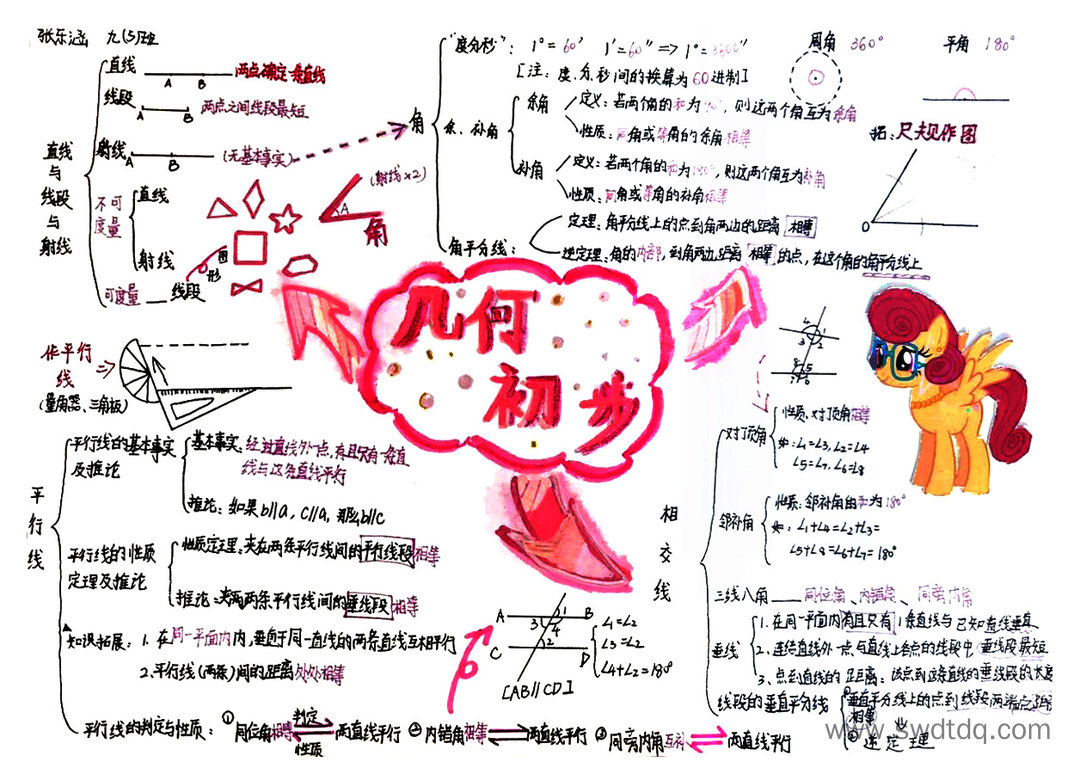 张乐涵 九(5)班
直线与线段与射线
直线 A B 两点确定一条直线
线段 A B 两点之间线段最短
射线 A B (无基本事实)
不可度量
直线
射线
可度量 线段
图形
A 角 (射线×2)
角
"度分秒": 1°=60′ 1′=60″ => 1°=3600″
[注: 度、分、秒间的换算为60进制]
周角 360° 平角 180°
余、补角
余角
定义: 若两个角的和为90°, 则这两个角互为余角
性质: 同角或等角的余角相等
补角
定义: 若两个角的和为180°, 则这两个角互为补角
性质: 同角或等角的补角相等
角平分线:
定理: 角平分线上的点到角两边的距离相等
逆定理: 角的内部, 到角两边距离相等的点, 在这个角的角平分线上
拓: 尺规作图
O
几何初步
作平行线 =>
(量角器、三角板)
平行线
平行线的基本事实及推论
基本事实: 经过直线外一点, 有且只有一条直线与这条直线平行
推论: 如果b//a, c//a, 那么b//c
平行线的性质定理及推论
性质定理: 夹在两条平行线间的平行线段相等
推论: 夹在两条平行线间的垂线段相等
知识拓展: 1. 在同一平面内, 垂直于同一直线的两条直线互相平行
2. 平行线(两条)间的距离处处相等
平行线的判定与性质: ① 同位角相等 判定 性质 两直线平行 ② 内错角相等 两直线平行 ③ 同旁内角互补 两直线平行
A B C D 1 3 4 2
∠1=∠2
∠3=∠2
∠4+∠2=180°
[AB//CD]
相交线
4 1 3 2
8 5 7 6
对顶角
性质: 对顶角相等
如: ∠1=∠3, ∠2=∠4
∠5=∠7, ∠6=∠8
邻补角
性质: 邻补角的和为180°
如: ∠1+∠4=∠2+∠3=
∠5+∠8=∠6+∠7=180°
三线八角 —— 同位角、内错角、同旁内角
垂线
1. 在同一平面内有且只有1条直线与已知直线垂直
2. 连结直线外一点与直线上各点的线段中, 垂线段最短
3. 点到直线的距离: 该点到这条直线的垂线段的长度
线段的垂直平分线
① 垂直平分线上的点到线段两端点距离相等
② 逆定理
www.swdtdq.com